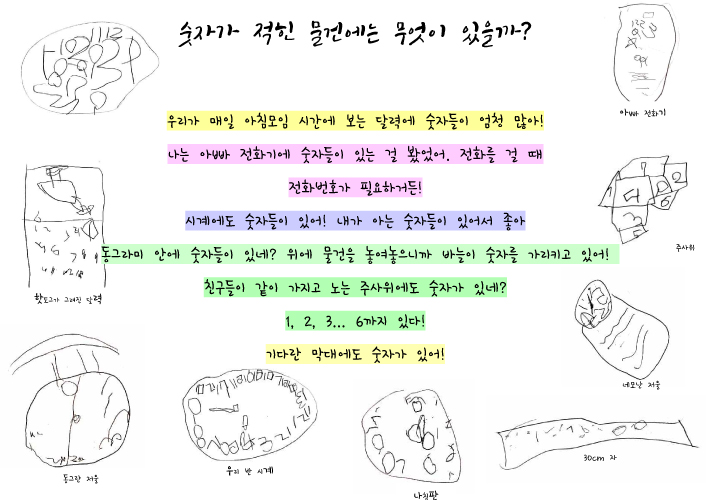 숫자가 적힌 물건에는 무엇이 있을까?
우리가 매일 아침모임 시간에 보는 달력에 숫자들이 엄청 많아!
나는 아빠 전화기에 숫자들이 있는 걸 봤었어. 전화를 걸 때
전화번호가 필요하거든!
시계에도 숫자들이 있어! 내가 아는 숫자들이 있어서 좋아
동그라미 안에 숫자들이 있네? 위에 물건을 놓여놓으니까 바늘이 숫자를 가리키고 있어!
친구들이 같이 가지고 노는 주사위에도 숫자가 있네?
1, 2, 3... 6까지 있다!
기다란 막대에도 숫자가 있어!
아빠 전화기
주사위
핫도그가 그려진 달력
네모난 저울
동그란 저울
우리 반 시계
나침판
30cm 자